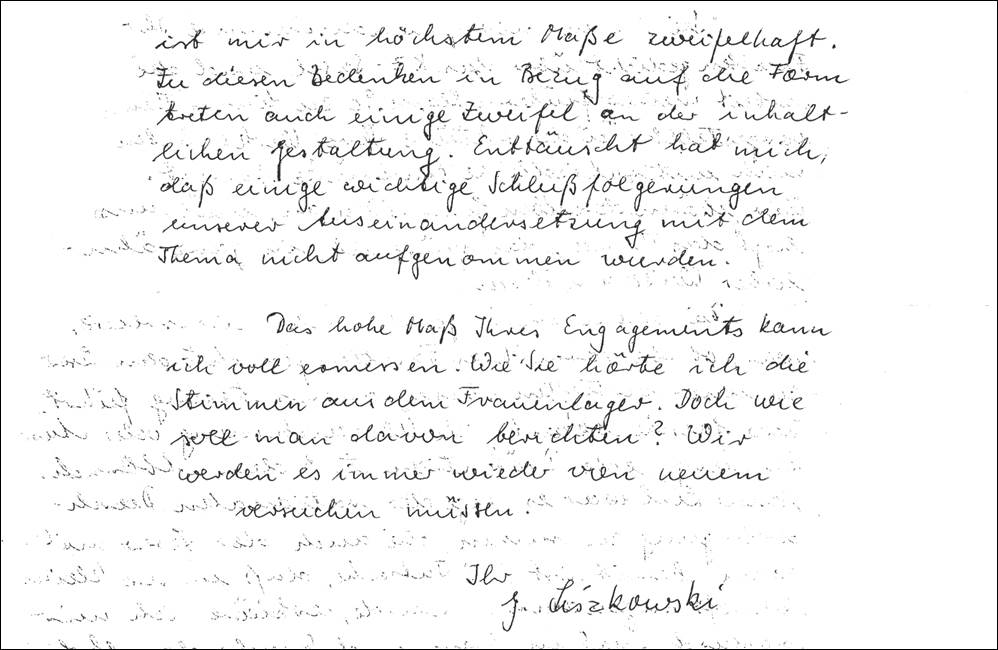 ist mir in höchstem Maße zweifelhaft.
Zu diesen Bedenken in Bezug auf die Form
treten auch einige Zweifel an der inhalt-
lichen Gestaltung. Enttäuscht hat mich,
daß einige wichtige Schlußfolgerungen
unserer Auseinandersetzung mit dem
Thema nicht aufgenommen wurden.
Das hohe Maß Ihres Engagements kann
ich voll ermessen. Wie Sie hörte ich die
Stimmen aus dem Frauenlager. Doch wie
soll man davon berichten? Wir
werden es immer wieder von neuem
versuchen müssen.
Ihr
J. Liszkowski